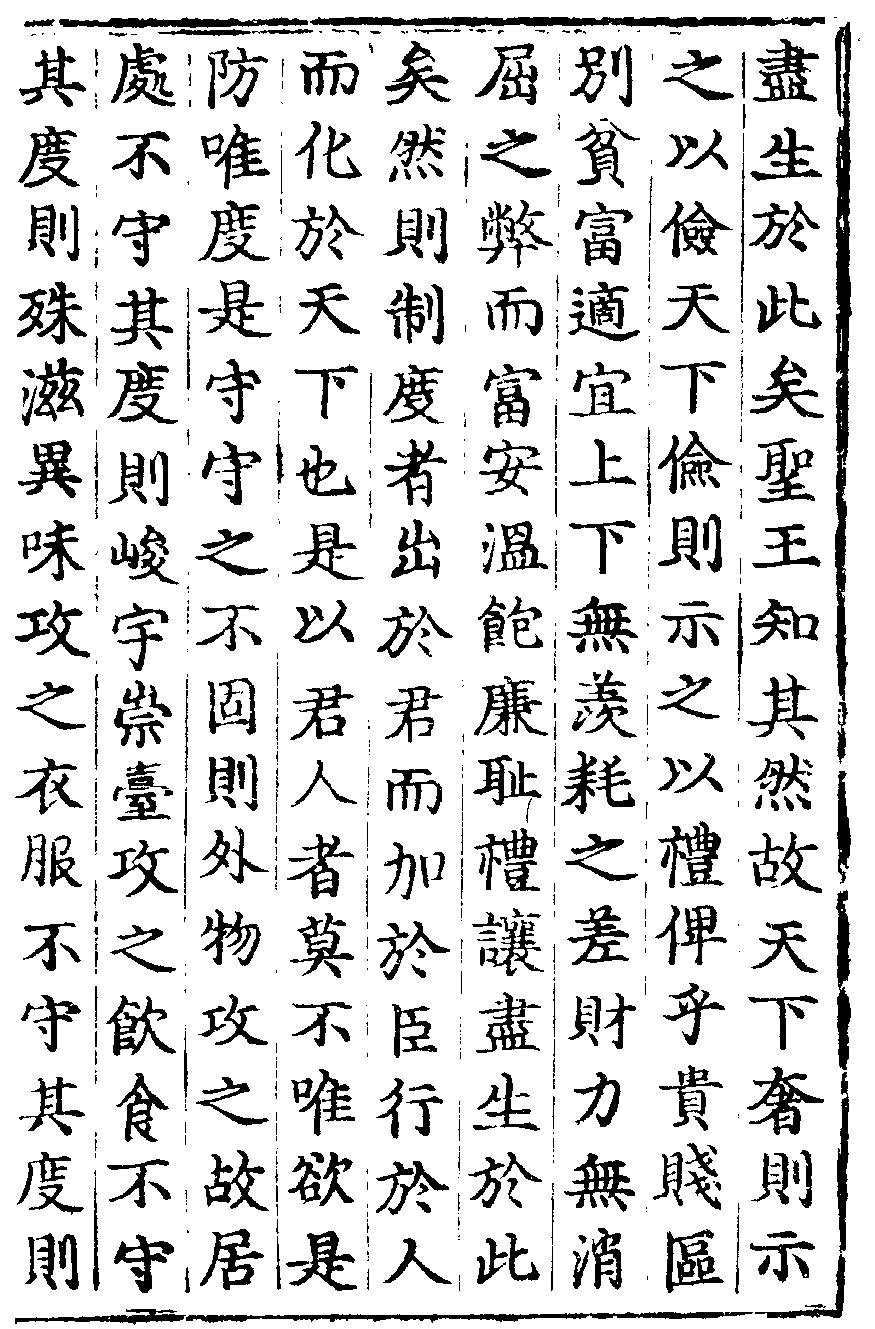 盡生於此矣聖王知其然故天下奢則示
之以儉天下儉則示之以禮俾乎貴賤區
別貧富適宜上下無羨耗之差財力無消
屈之弊而富安溫飽廉耻禮讓盡生於此
矣然則制度者出於君而加於臣行於人
而化於天下也是以君人者莫不唯欲是
防唯度是守守之不固則外物攻之故居
處不守其度則峻宇崇臺攻之飮食不守
其度則殊滋異味攻之衣服不守其度則